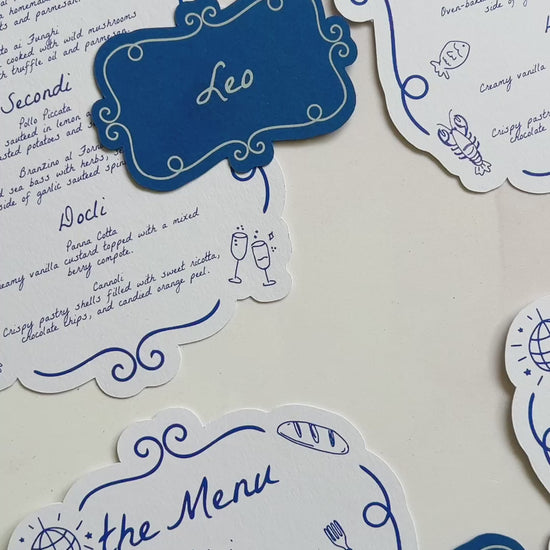 and parmesan.
ai Funghi
cooked with wild mushrooms
truffle oil and parmesan
Secondi
Pollo Piccata
sauteed in lemon
potatoes and
Branzino al Forno
sea bass with herbs,
side of garlic sauteed
Docli
Panna Cotta
reamy vanilla custard topped with a mixed
berry compote.
Cannoli
Crispy pastry shells filled with sweet ricotta,
chocolate chips, and candied orange peel.
Leo
Oven-baked
side of
Creamy vanilla
Crispy
chocolate
the Menu